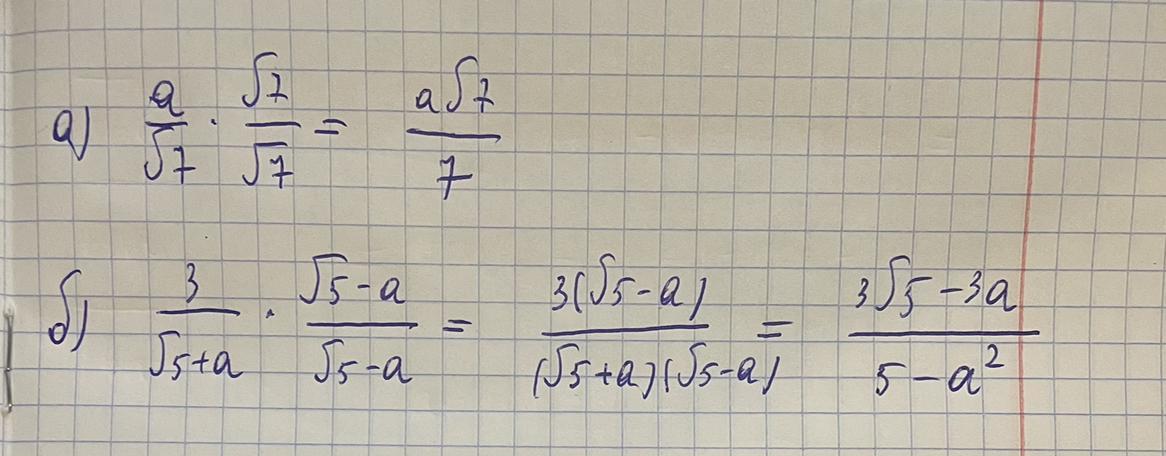 а) a/√7 · √7/√7 = a√7/7
б) 3/(√5+a) · (√5-a)/(√5-a) = 3(√5-a)/((√5+a)(√5-a)) = (3√5-3a)/(5-a²)